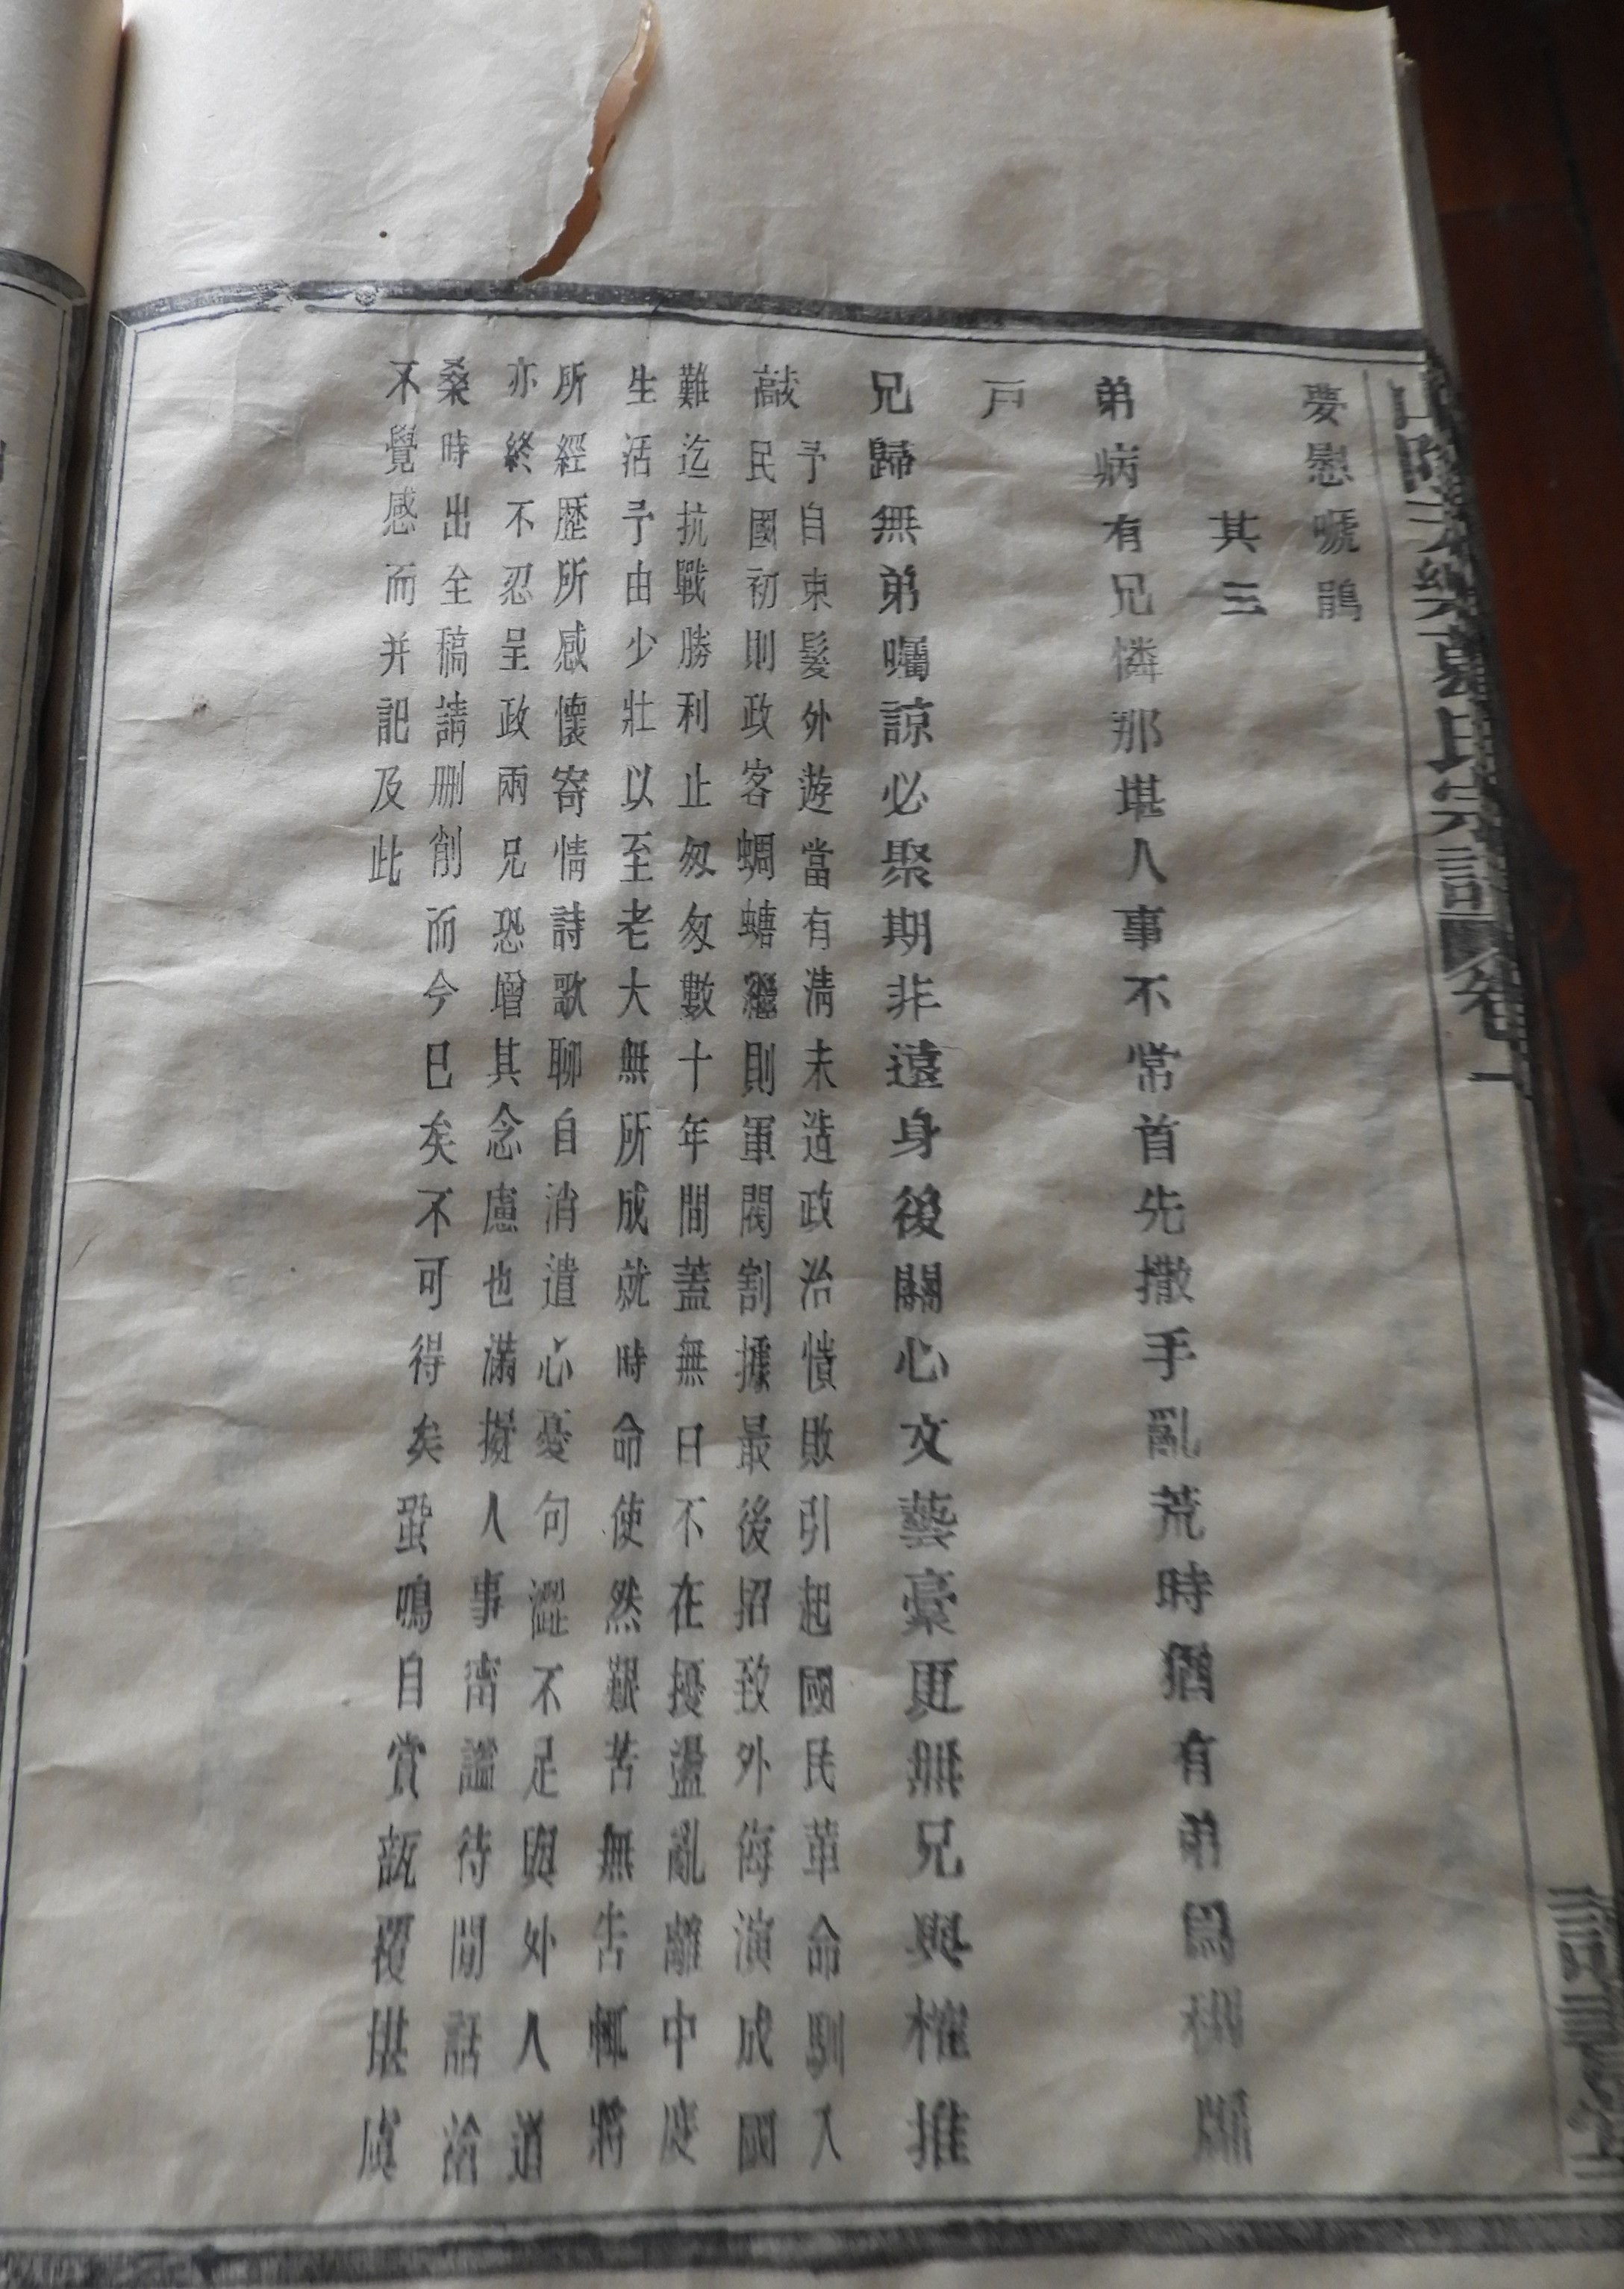 夢慰嗁鵑
其三
弟病有兄憐那堪人事不常首先撒手亂荒時猶有弟爲
戶
兄歸無弟囑諒必聚期非遠身後關心文藝稾更無兄與榷推
敲
予自束髮外遊當有清末造政治憒敗引起國民革命馴入
民國初則政客蜩螗繼則軍閥割據最後招致外侮演成國
難迄抗戰勝利止匆匆數十年間蓋無日不在擾盪亂離中度
生活予由少壯以至老大無所成就時命使然艱苦無告輒將
所經歷所感懷寄情詩歌聊自消遣心憂句澀不足與外人道
亦終不忍呈政兩兄恐增其念慮也滿擬人事甯謐待閒話洽
桑時出全稿請刪削而今已矣不可得矣蛩鳴自賞瓿覆堪虞
不覺感而并記及此